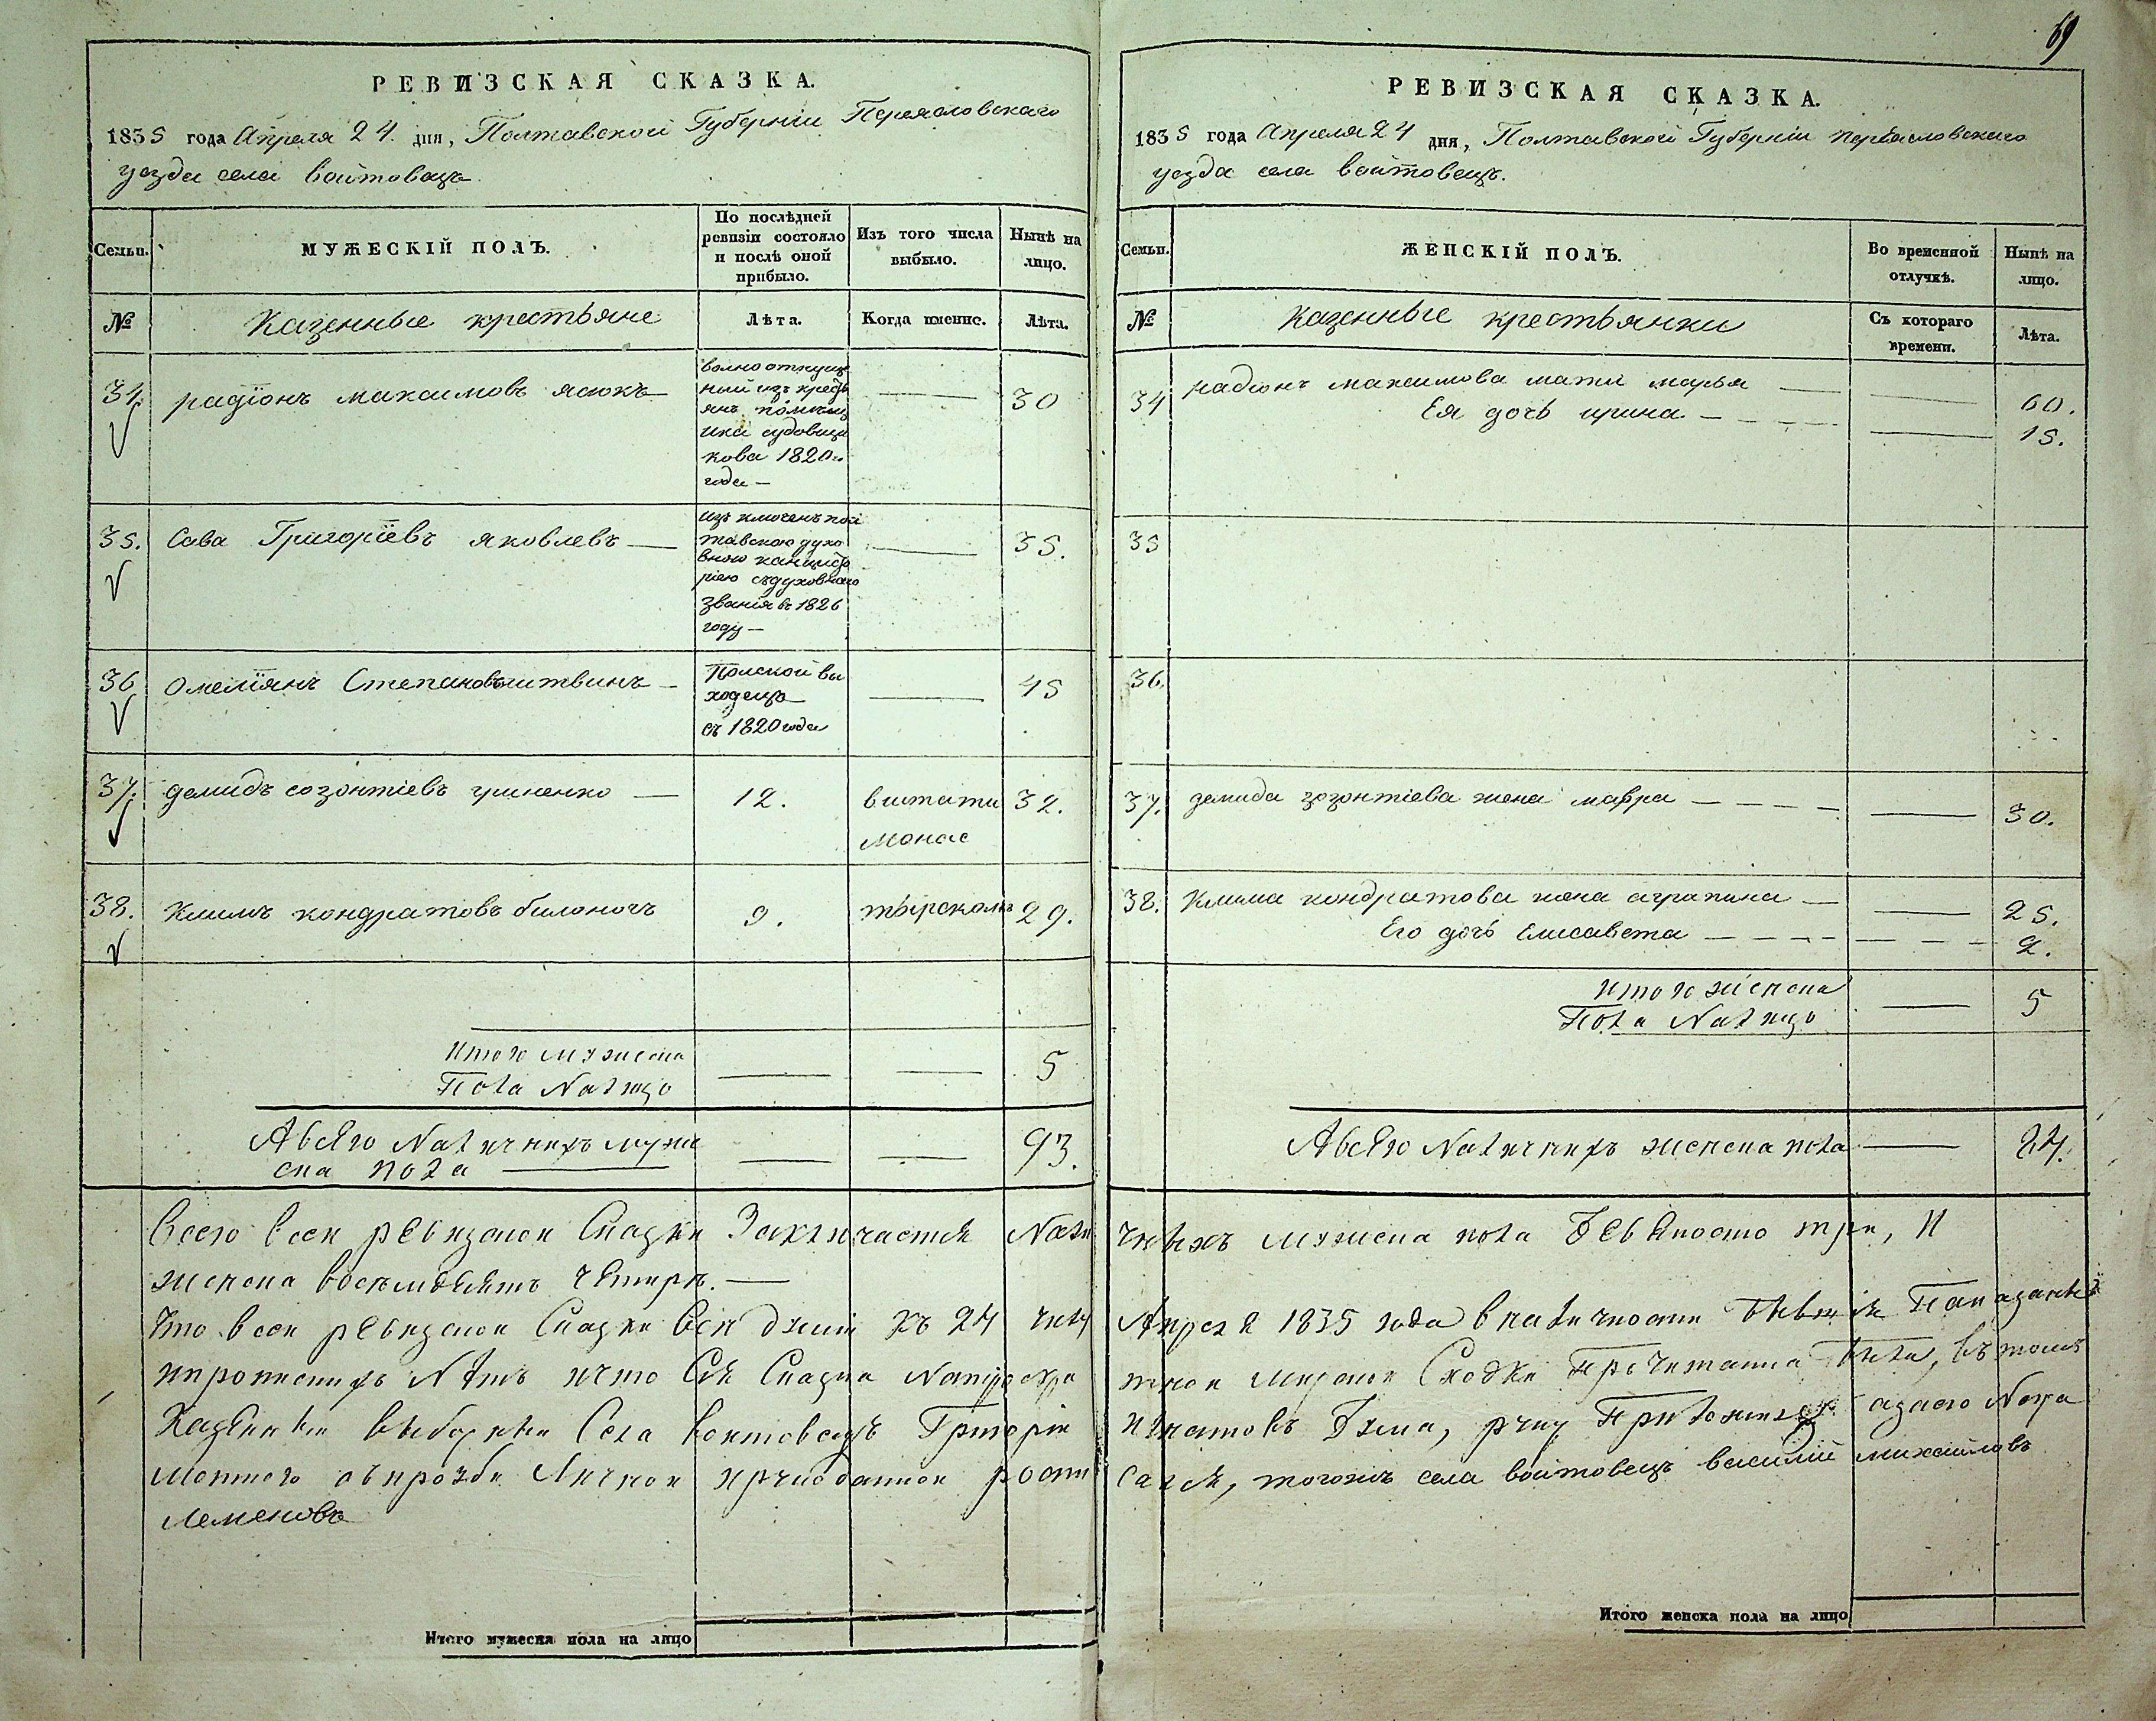 69
РЕВИЗСКАЯ СКАЗКА.
1835 года Апреля 24. дня, Полтавской Губерніи Переясловскаго
уезда села воитовецъ
Семьи.
МУЖЕСКІЙ ПОЛЪ.
По послѣдней ревизіи состояло и послѣ оной прибыло.
Изъ того числа выбыло.
Нынѣ на лицо.
№
Казенные крестьяне
Лѣта.
Когда именно.
Лѣта.
34.
радіонъ максимовъ ясюкъ
волно отпущен
ный изъ кресть
янъ помещ
ика судовщи
кова 1820го
года
30
35.
Сава Григоріевъ яковлевъ
изъключенъ пол
тавскою духо
вною канцеля
ріею съдуховнаго
званія въ 1826
году
35.
36
Омеліянъ Степановъ литвинъ
Полской вы
ходецъ
съ 1820 года
45
37.
демидъ созонтіевъ гриненко
12.
вштати
монас
32.
38.
Климъ кондратовъ билоночъ
9.
тырскомъ
29.
Итого мужеска
Пола Налицо
5
А всего Наличныхъ муже
ска пола
93.
РЕВИЗСКАЯ СКАЗКА.
1835 года Апреля 24 дня, Полтавской Губерніи переясловскаго
уезда села воитовецъ.
Семьи.
ЖЕНСКІЙ ПОЛЪ.
Во временной отлучкѣ.
Нынѣ на лицо.
№
Казенные крестьянки
Съ котораго времени.
Лѣта.
34
радіонъ максимова мати марья
60.
Ея дочь ирина
15.
35
36.
37.
демида зозонтіева жена мавра
30.
38.
Клима кондратова жена агрипина
25.
Его дочь Елисавета
2.
Итого женска
Пола Налицо
5
А всего Наличныхъ женска пола
84.
Всего всеи ревизскои Сказки Заключается Нали чныхъ мужеска пола Девяносто три, И
женска восемдесятъ четыри.
Что всеи ревизскои Сказки Вси души къ 24 числу Апреля 1835 года вналичности
ипрописныхъ Нѣтъ ичто Сія Сказка мирскои Сходки Прочитанна была, вътомъ
Казенныи выборныи Села воитовецъ Григорій руку Приложилъ
саися, тогожъ села воитовецъ василій михаиловъ
Семеновъ
Итого мужеска пола на лицо
Итого женска пола на лицо